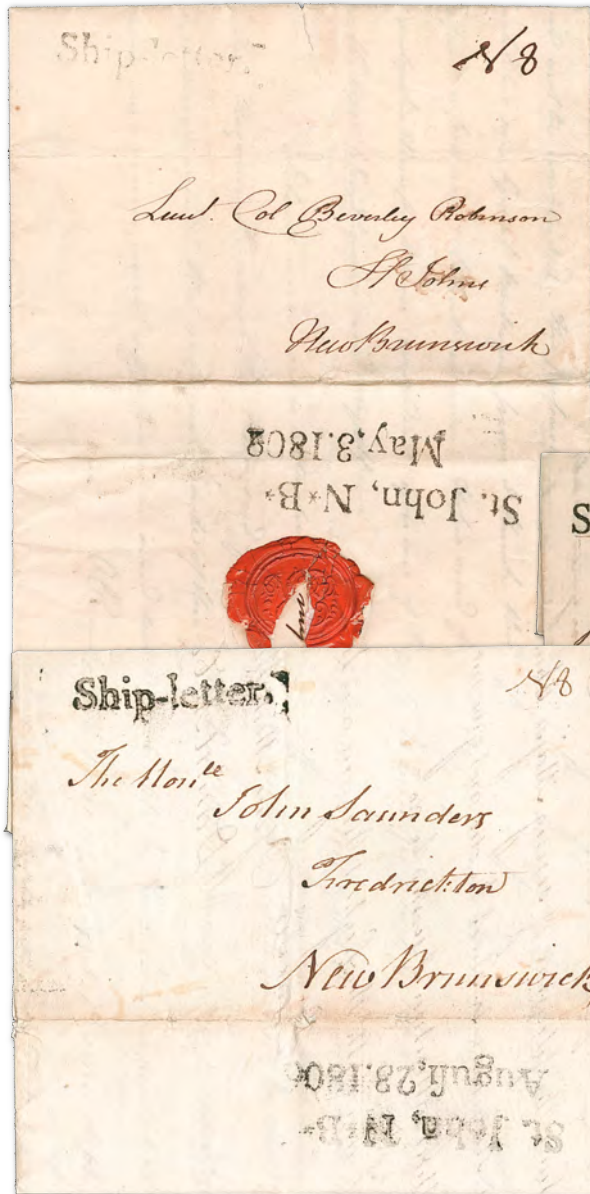 Ship-letter.
N8
Lieut. Col Beverley Robinson
St Johns
New Brunswick
St. John, N*B*
May,3.1802
S
Ship-letter.
N8
The Honle
John Saunders
Fredrickton
New Brunswick
St. John, N*B*
Auguſt,28.1806